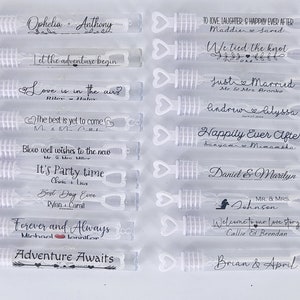 Ophelia Anthony
Let the adventure begin
Love is in the air!
The best is yet to come
Blow well wishes to the new
Mr & Mrs
It's Party time
Chris & Lisa
Best Day Ever
Rylan & Carrol
Forever and Always
Michael Jennifer
Adventure Awaits
TO LOVE, LAUGHTER & HAPPILY EVER AFTER
Maddie & Jared
We tied the knot
Just Married
Mr & Mrs Brooks
Andrew Alyssa
Happily Ever After
Daniel & Marilyn
Mr & Mrs
Johnson
Welcome to our Love Story
Callie & Brandon
Brian & April